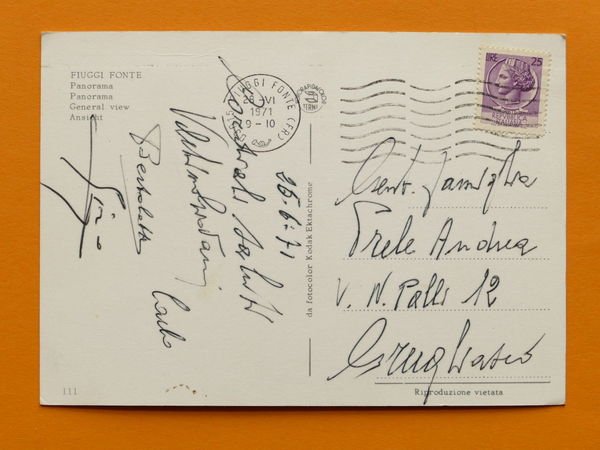 FIUGGI FONTE
Panorama
Panorama
General view
Ansicht
FIUGGI FONTE (FR)
26 VI
1971
9-10
LIRE 25
25-6-71
Cordiali saluti
Bertoletti
Carlo
da fotocolor Kodak Ektachrome
Gent. Famiglia
Prele Andrea
V. N. Palli 12
Grugliasco
111
Riproduzione vietata